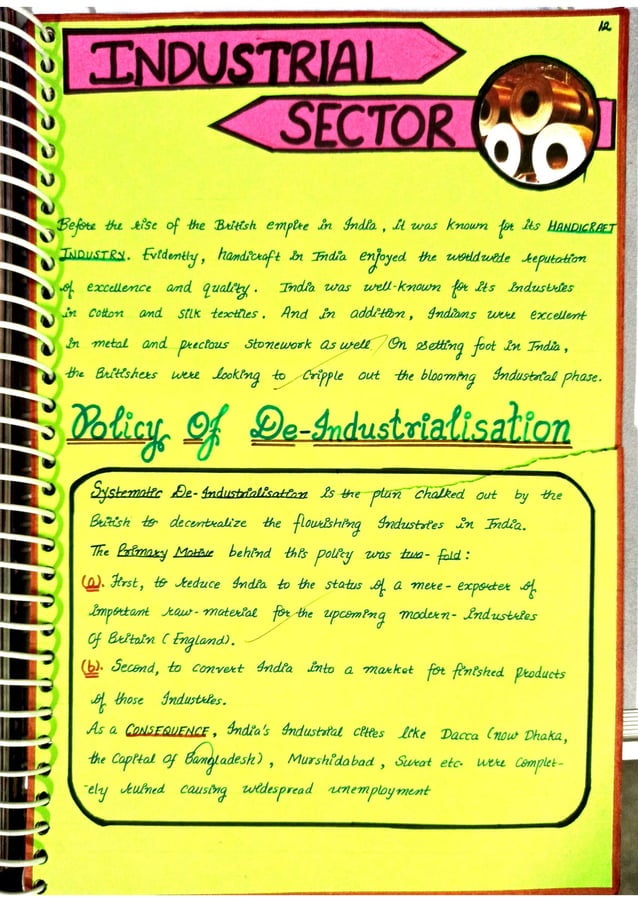 12
INDUSTRIAL
SECTOR
Before the rise of the British empire in India, it was known for its HANDICRAFT
INDUSTRY. Evidently, handicraft in India enjoyed the worldwide reputation
of excellence and quality. India was well-known for its Industries
in cotton and silk textiles. And in addition, Indians were excellent
in metal and precious stonework as well. On setting foot in India,
the Britishers were looking to cripple out the blooming Industrial phase.
Policy Of De-Industrialisation
Systematic De-Industrialisation is the plan chalked out by the
British to decentralize the flourishing Industries in India.
The Primary Motive behind this policy was two-fold:
(a). First, to reduce India to the status of a mere-exporter of
important raw-material for the upcoming modern-industries
Of Britain (England).
(b). Second, to convert India into a market for finished products
of those Industries.
As a CONSEQUENCE, India's Industrial cities like Dacca (now Dhaka,
the Capital Of Bangladesh), Murshidabad, Surat etc. were Complet-
-ely ruined causing widespread unemployment